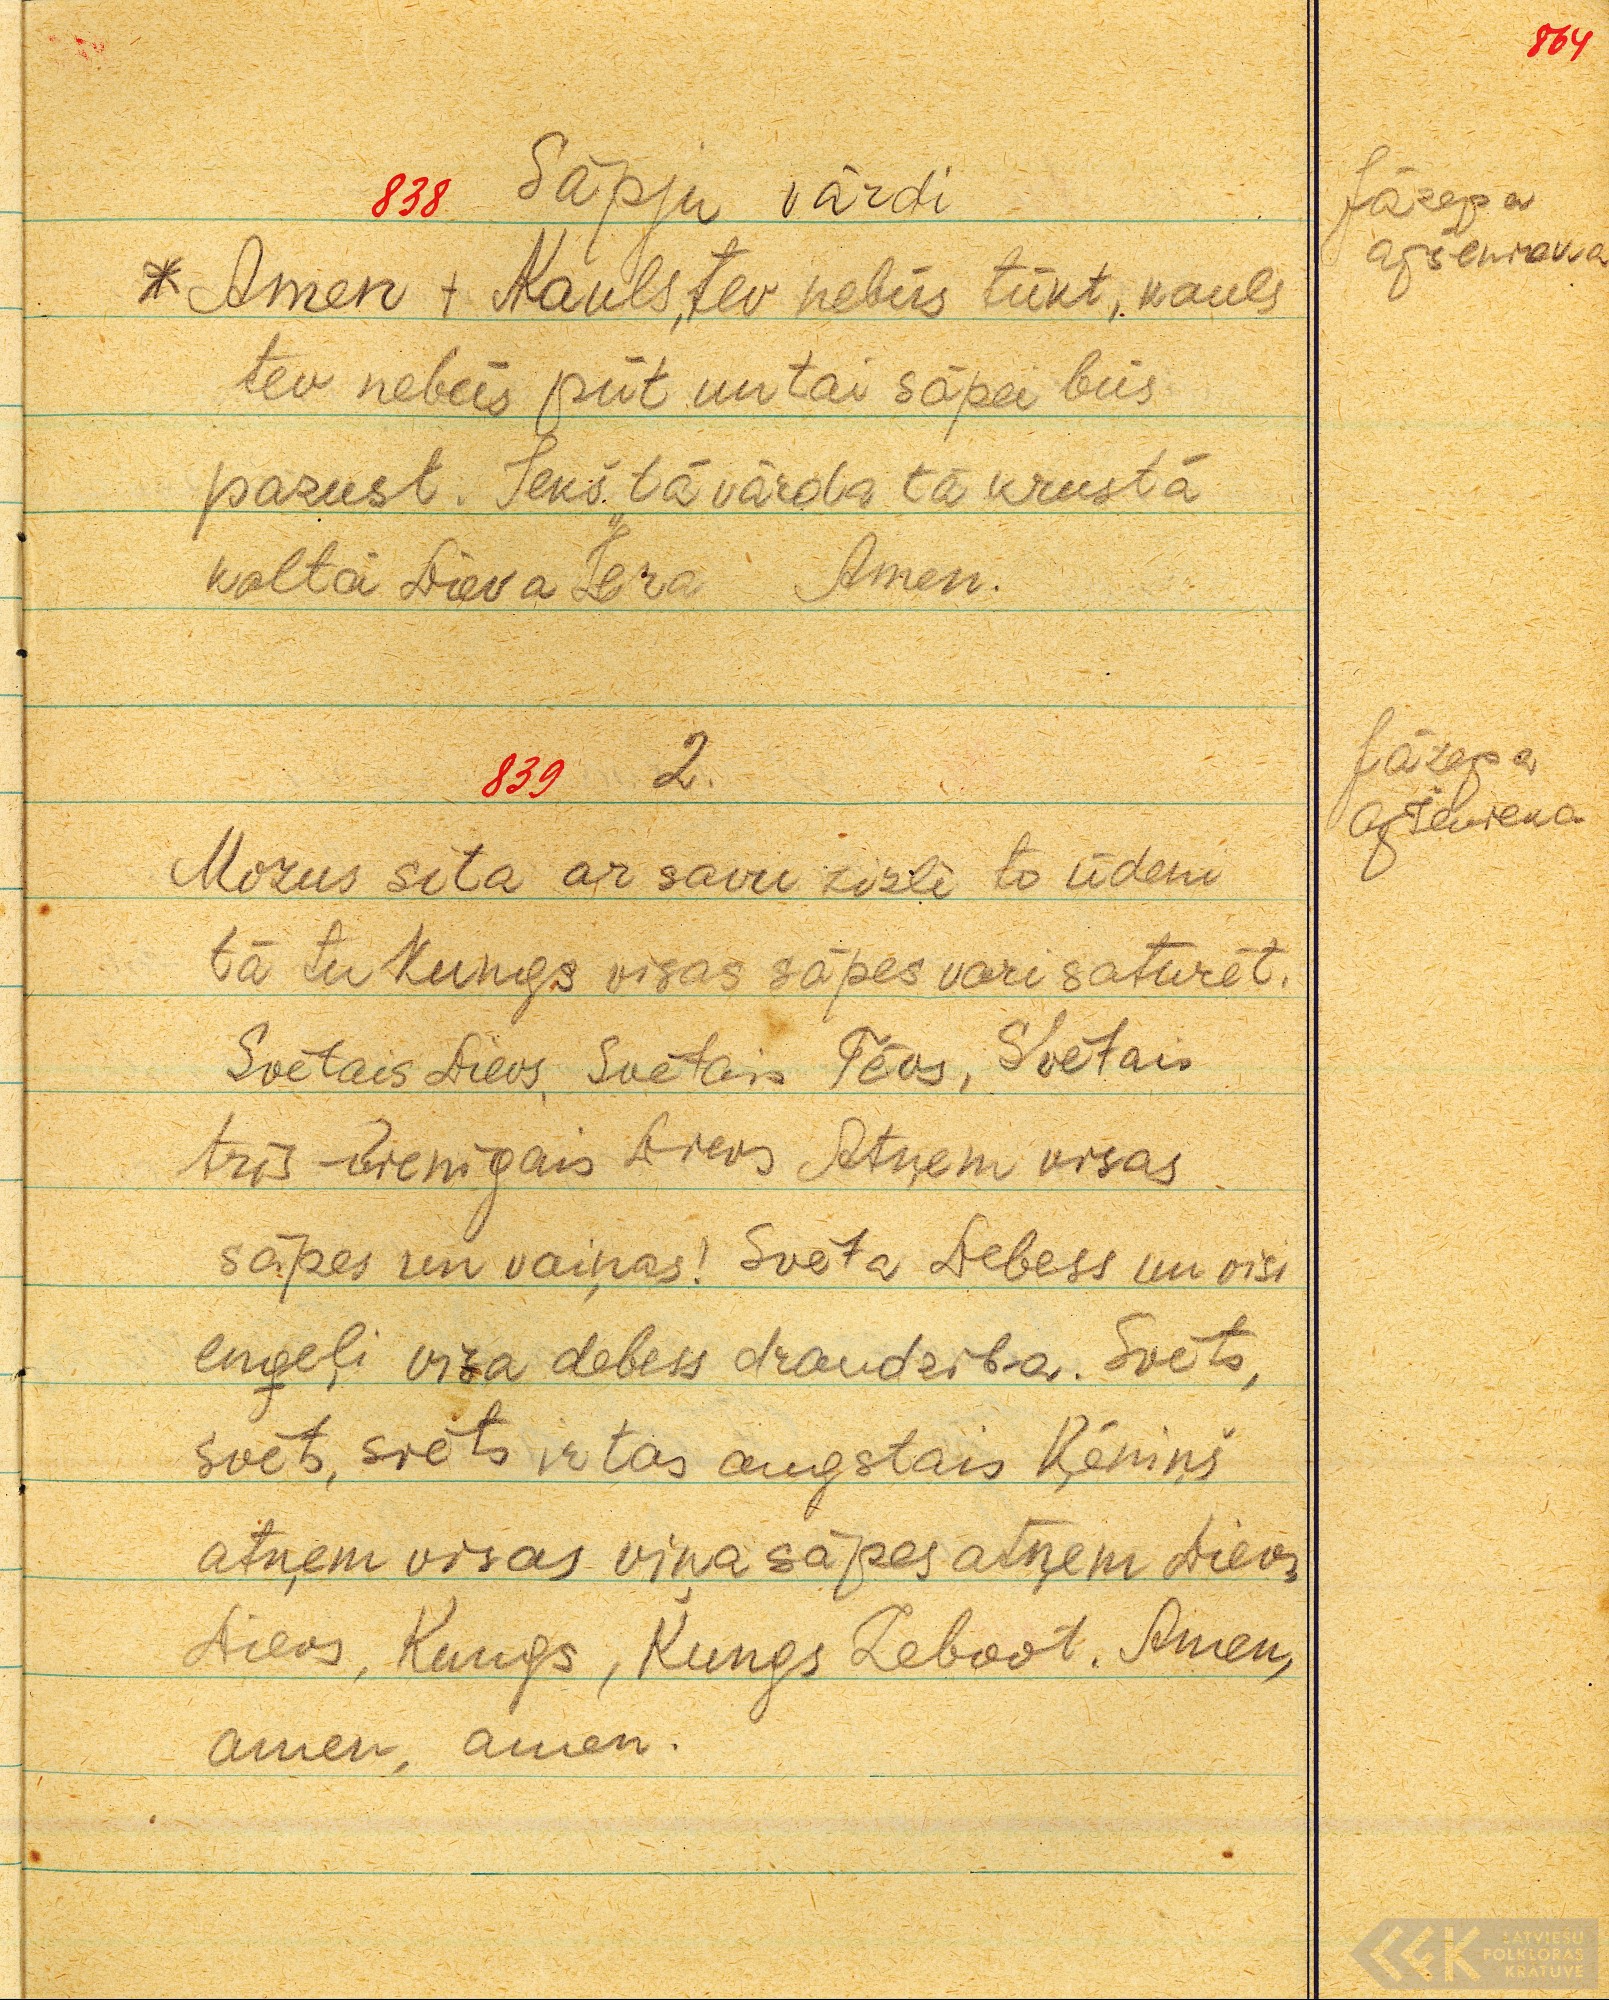 864
838 Sāpju vārdi
Jāzepa
* Amen + Kauls, tev nebūs tūkt, kauls
tev nebūs pūt un tai sāpei būs
pazust. Iekš tā vārda tā krustā
kaltā Dieva Jēra Amen.
839 2.
Jāzepa
Mozus sita ar savu zizli to ūdeni
tā tu Kungs visas sāpes vari saturēt.
Svētais Dievs, Svētais Tēvs, Svētais
trīs-vienīgais Dievs Atņem visas
sāpes un vaiņas! Svēta Debess un visi
eņģeļi visa debess draudzība. Svēts,
svēts, svēts ir tas augstais Ķēniņš
atņem visas viņa sāpes atņem Dievs
Dievs, Kungs, Kungs Zeboot. Amen,
amen, amen.
LATVIEŠU
FOLKLORAS
KRĀTUVE